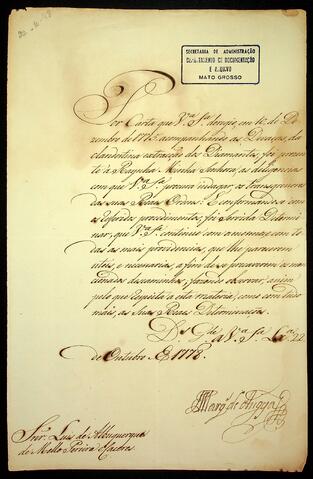 SECRETARIA DE ADMINISTRAÇÃO
DEPARTAMENTO DE DOCUMENTAÇÃO
E ARQUIVO
MATO GROSSO
Por Carta que V.ª S.ª dirigio, em 16 de De
zembro de 1775 acompanhando as Devaças, da
clandestina extracção dos Diamantes, foi prezen
te à Raynha Minha Senhora, as diligencias
com que V.ª S.ª procura indagar, os transgressores
das suas Reaes Ordens: E conformandose com
os referidos procedimentos, foi servida Determi
nar, que V.ª S.ª continue com a mesma, e com to
das as mais providencias, que lhe parecerem
uteis, e necessarias, a fim de se
fazendo observar, assim
pelo que respeita a esta materia, como em tudo
mais, as Suas Reaes Determinações.
D.s G.de a V.ª S.ª Lx.ª 22
de Outubro de 1778.
Snor. Luis de Albuquerque
de Mello Pereira e Caceres